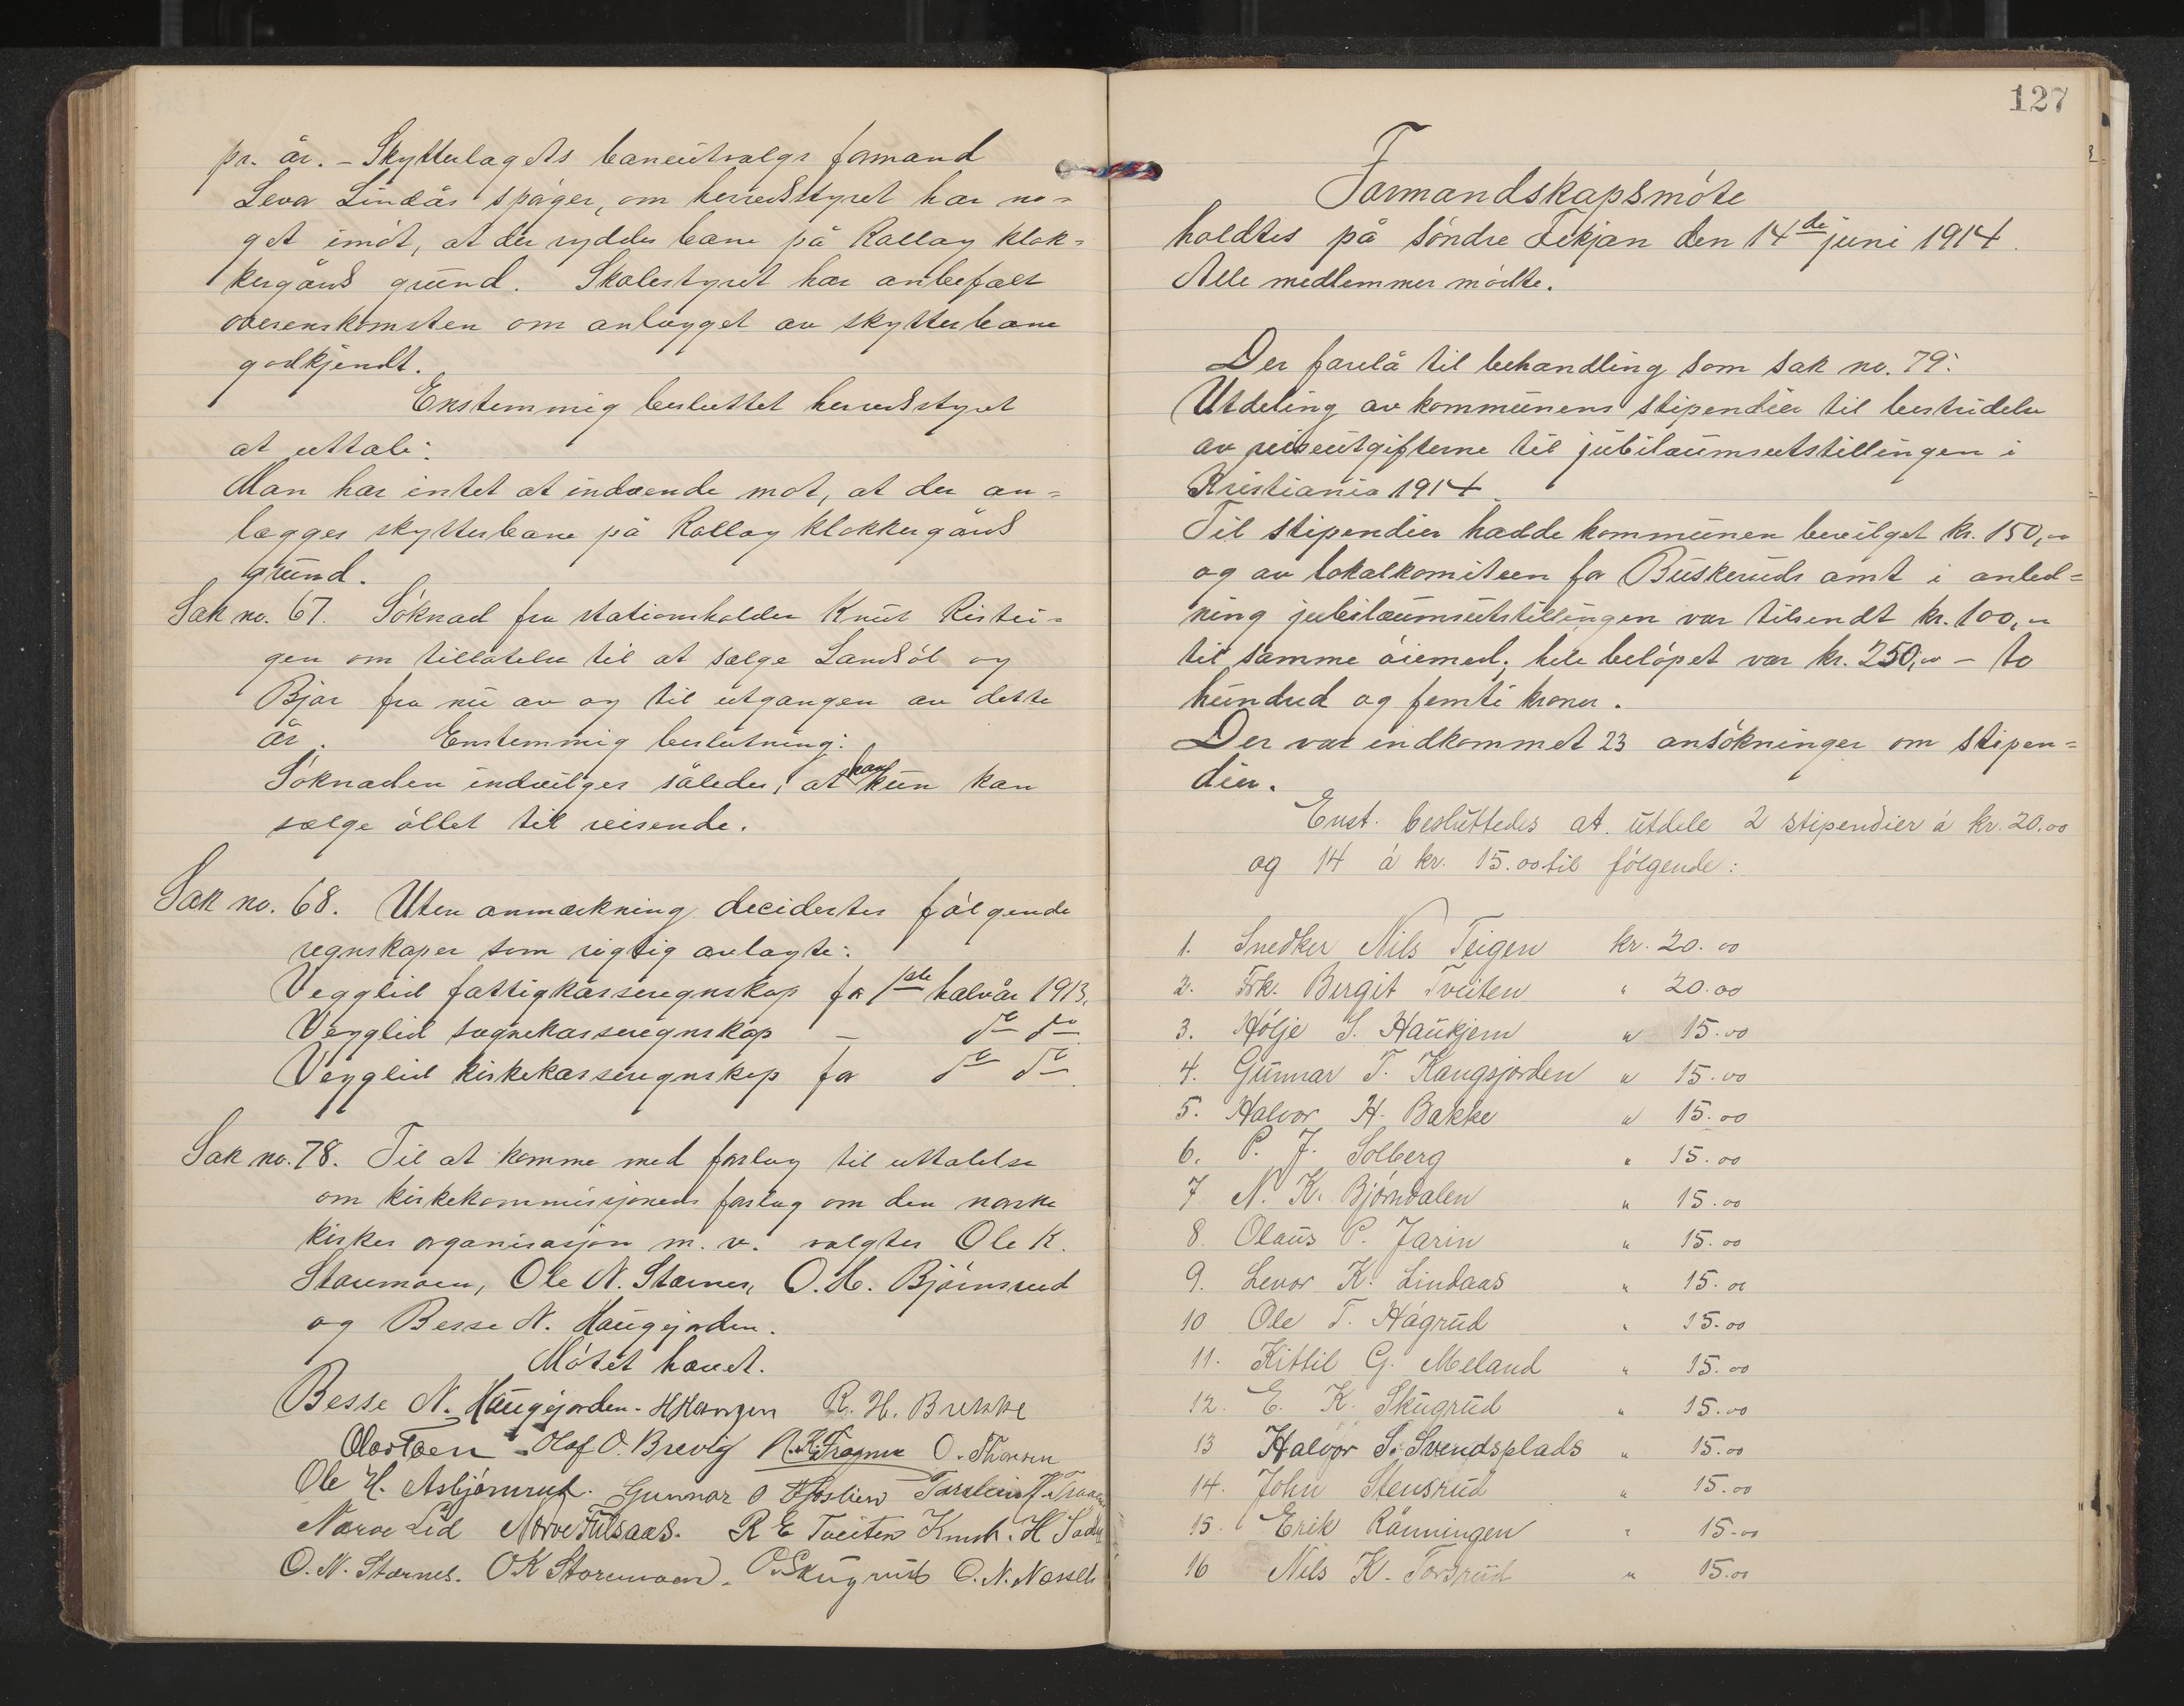 pr. år. – Skytterlagets baneutvalgs formand
Levor Lindås spøger, om herredsstyret har no=
get imót, at der ryddes bane på Rollag klok=
kergårds grund. Skolestyret har anbefalt
overenskomsten om anlægget av skytterbane
godkjendt.
Enstemmig besluttet herredsstyret
at uttale:
Man har intet at indvende mot, at der an=
lægges skytterbane på Rollag klokkergårds
grund.
Sak no. 67. Sóknad fra stationsholder Knut Ristei=
gen om tillatelse til at sælge Landsól og
Bjor fra nu av og til utgangen av dette
år. Enstemmig beslutning:
Sóknaden indvilges således, at han kun kan
sælge óllet til reisende.
Sak no. 68. Uten anmærkning decidertes fólgende
regnskaper som rigtig avlagte:
Vegglid fattigkasseregnskap for 1ste halvår 1913.
Vegglid sognekasseregnskap – do do
Vegglid kirkekasseregnskap for do do
Sak no. 78. Til at komme med forslag til uttalelse
om kirkekommissjonens forslag om den norske
kirkes organisasjon m. v. valgtes Ole K.
Storemoen, Ole N. Stærnes, O. H. Bjórnsrud
og Besse N. Haugejorden.
Mótet hævet.
Besse N. Haugejorden. R. H. Brekke
Olaf O. Brevig O. Thorsen
Ole H. Asbjórnrud. Gunnar O Foslien
Narve Lid Narve Fulsaas. R E Tveiten Knut. H
O. N. Stærnes. O K Storemoen. O Skugrud O. N.
127
Formandskapsmóte
holdtes på sóndre Fekjan den 14de juni 1914.
Alle medlemmer módte.
Der forelå til behandling som sak no. 79:
Utdeling av kommunens stipendier til bestridelse
av reiseutgifterne til jubilæumsutstillingen i
Kristiania 1914
Til stipendier hadde kommunen bevilget kr. 150,00
og av lokalkomiteen for Buskeruds amt i anled=
ning jubilæumsutstillingen var tilsendt kr. 100,00
til samme óiemed; hele belópet var kr. 250,00 – to
hundred og femti kroner.
Der var indkommet 23 ansókninger om stipen=
dier.
Enst. besluttedes at utdele 2 stipendier á kr. 20.00
og 14 á kr. 15.00 til fólgende:
1. Snedker Nils Teigen kr. 20.00
2. Frk. Bergit Tveiten " 20.00
3. Hólje S. Haukjem " 15.00
4. Gunnar T. Kaugsjorden " 15.00
5. Halvor H. Bakke " 15.00
6. P. J. Solberg " 15.00
7 N. K. Bjórndalen " 15.00
8. Olaus P. Jarin " 15.00
9. Levor K. Lindaas " 15.00
10 Ole T. Hágrud " 15.00
11. Kittil G. Meland " 15.00
12. E. K. Skugrud " 15.00
13 Halvor S. Svendsplads " 15.00
14. John Stensrud " 15.00
15. Erik Rånningen " 15.00
16 Nils K. Torsrud " 15.00